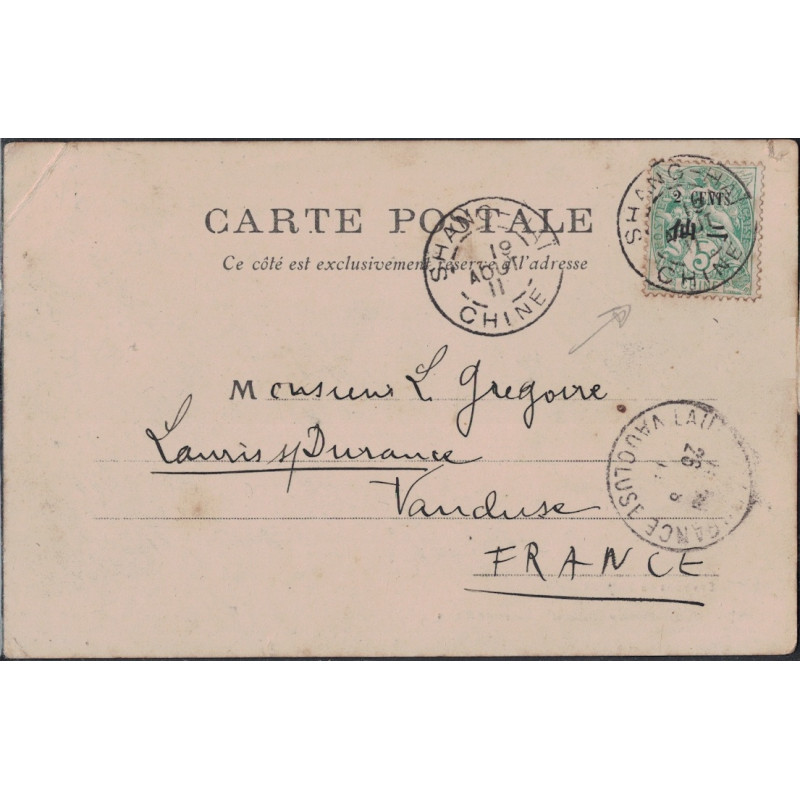 CARTE POSTALE
Ce côté est exclusivement réservé à l'adresse
SHANG-HAI
19
AOUT
11
CHINE
SHANG-HAI
2 CENTS
5
CHINE
Monsieur L. Gregoire
Lauris s/Durance
Vaucluse
FRANCE
VAUCLUSE
26
8